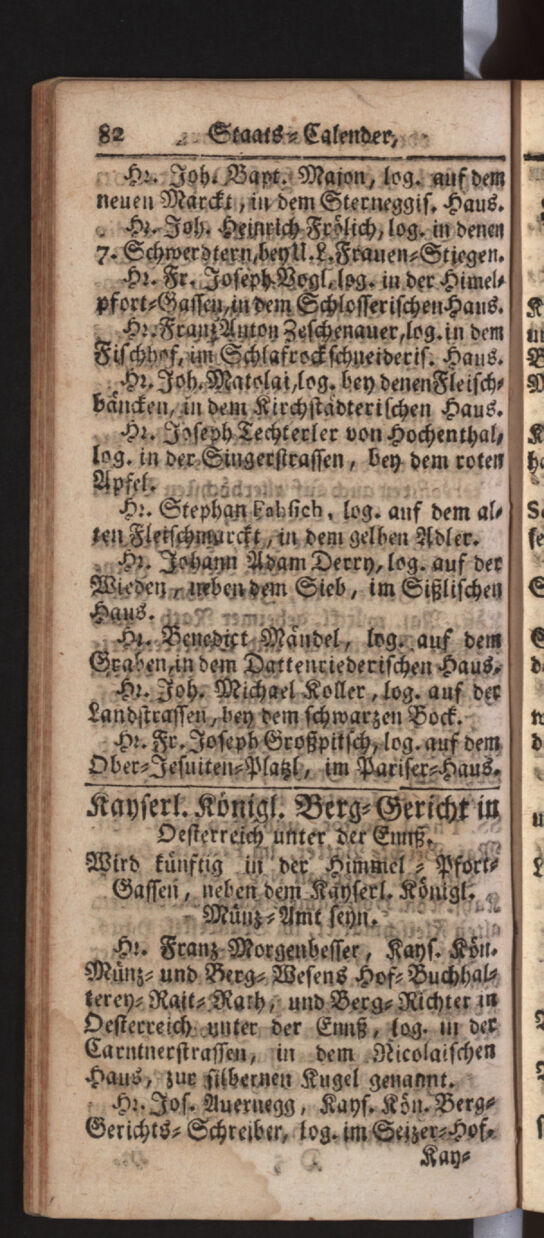 82 Staats-Calender,
Hr. Joh. Bapt. Majon, log. auf dem
neuen Marckt, in dem Sterneggis. Haus.
Hr. Joh. Heinrich Frölich, log. in denen
7. Schwerdtern, bey U. L. Frauen-Stiegen.
Hr. Fr. Joseph Vogl, log. in der Himel-
pfort-Gassen, in dem Schlosserischen Haus.
Hr. Franz Anton Zeschenauer, log. in dem
Fischhof, im Schlafrockschneideris. Haus.
Hr. Joh. Matolai, log. bey denen Fleisch-
bäncken, in dem Kirchstädterischen Haus.
Hr. Joseph Techterler von Hochenthal,
log. in der Singerstrassen, bey dem roten
Apfel.
Hr. Stephan Fabsich, log. auf dem al-
ten Fleischmarckt, in dem gelben Adler.
Hr. Johann Adam Derry, log. auf der
Wieden, neben dem Sieb, im Sißlischen
Haus.
Hr. Benedict Mändel, log. auf dem
Graben, in dem Dattenriederischen Haus.
Hr. Joh. Michael Koller, log. auf der
Landstrassen, bey dem schwarzen Bock.
Hr. Fr. Joseph Großpitsch, log. auf dem
Ober-Jesuiten-Platzl, im Pariser-Haus.
Kayserl. Königl. Berg-Gericht in
Oesterreich unter der Ennß.
Wird künftig in der Himmel-Pfort-
Gassen, neben dem Kayserl. Königl.
Münz-Amt seyn.
Hr. Franz Morgenbesser, Kays. Kön.
Münz- und Berg-Wesens Hof-Buchhal-
terey-Rait-Rath, und Berg-Richter in
Oesterreich unter der Ennß, log. in der
Carntnerstrassen, in dem Nicolaischen
Haus, zur silbernen Kugel genannt.
Hr. Jos. Auernegg, Kays. Kön. Berg-
Gerichts-Schreiber, log. im Seizer-Hof.
Kay-